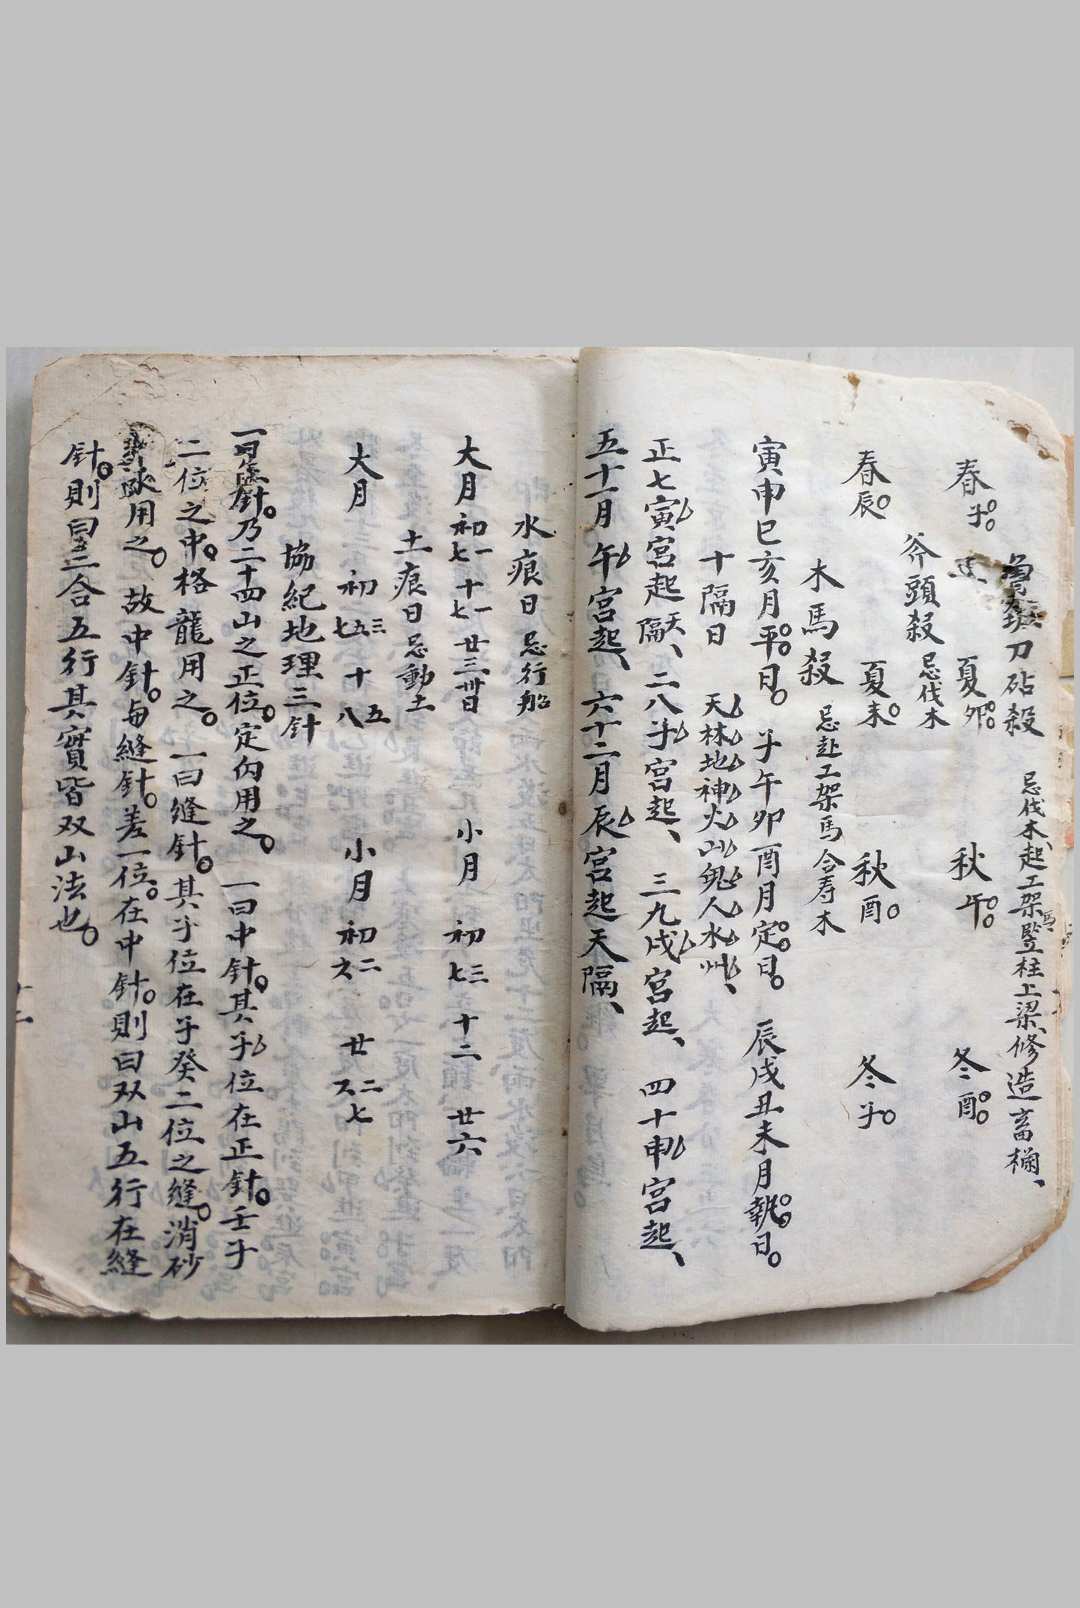 魯班刀砧殺 忌伐木起工架馬竪柱上梁、修造畜欄、
春子。 夏卯。 秋午。 冬酉。
斧頭殺 忌伐木
春辰。 夏未。 秋酉。 冬子。
木馬殺 忌赴工架馬合寿木
寅申巳亥月平日。 子午卯酉月定日。 辰戌丑未月執日。
十隔日 天林地神火山鬼人水州、
正七寅宮起天隔、二八子宮起、三九戌宮起、四十申宮起、
五十一月午宮起、六十二月辰宮起天隔、
水痕日 忌行船
大月 初一 初七 十一 十七 廿三 卅日 小月 初三 初七 十二 廿六
土痕日 忌動土
大月 初三 初五 初七 十五 十八 小月 初二 初六 廿二 廿六 廿七
協紀地理三針
一曰正針。乃二十四山之正位。定向用之。一曰中針。其子位在正針。壬子
二位之中。格龍用之。一曰縫針。其子位在子癸二位之縫。消砂
用之。故中針。与縫針。差一位。在中針。則曰双山五行在縫
針。則曰三合五行其實皆双山法也。